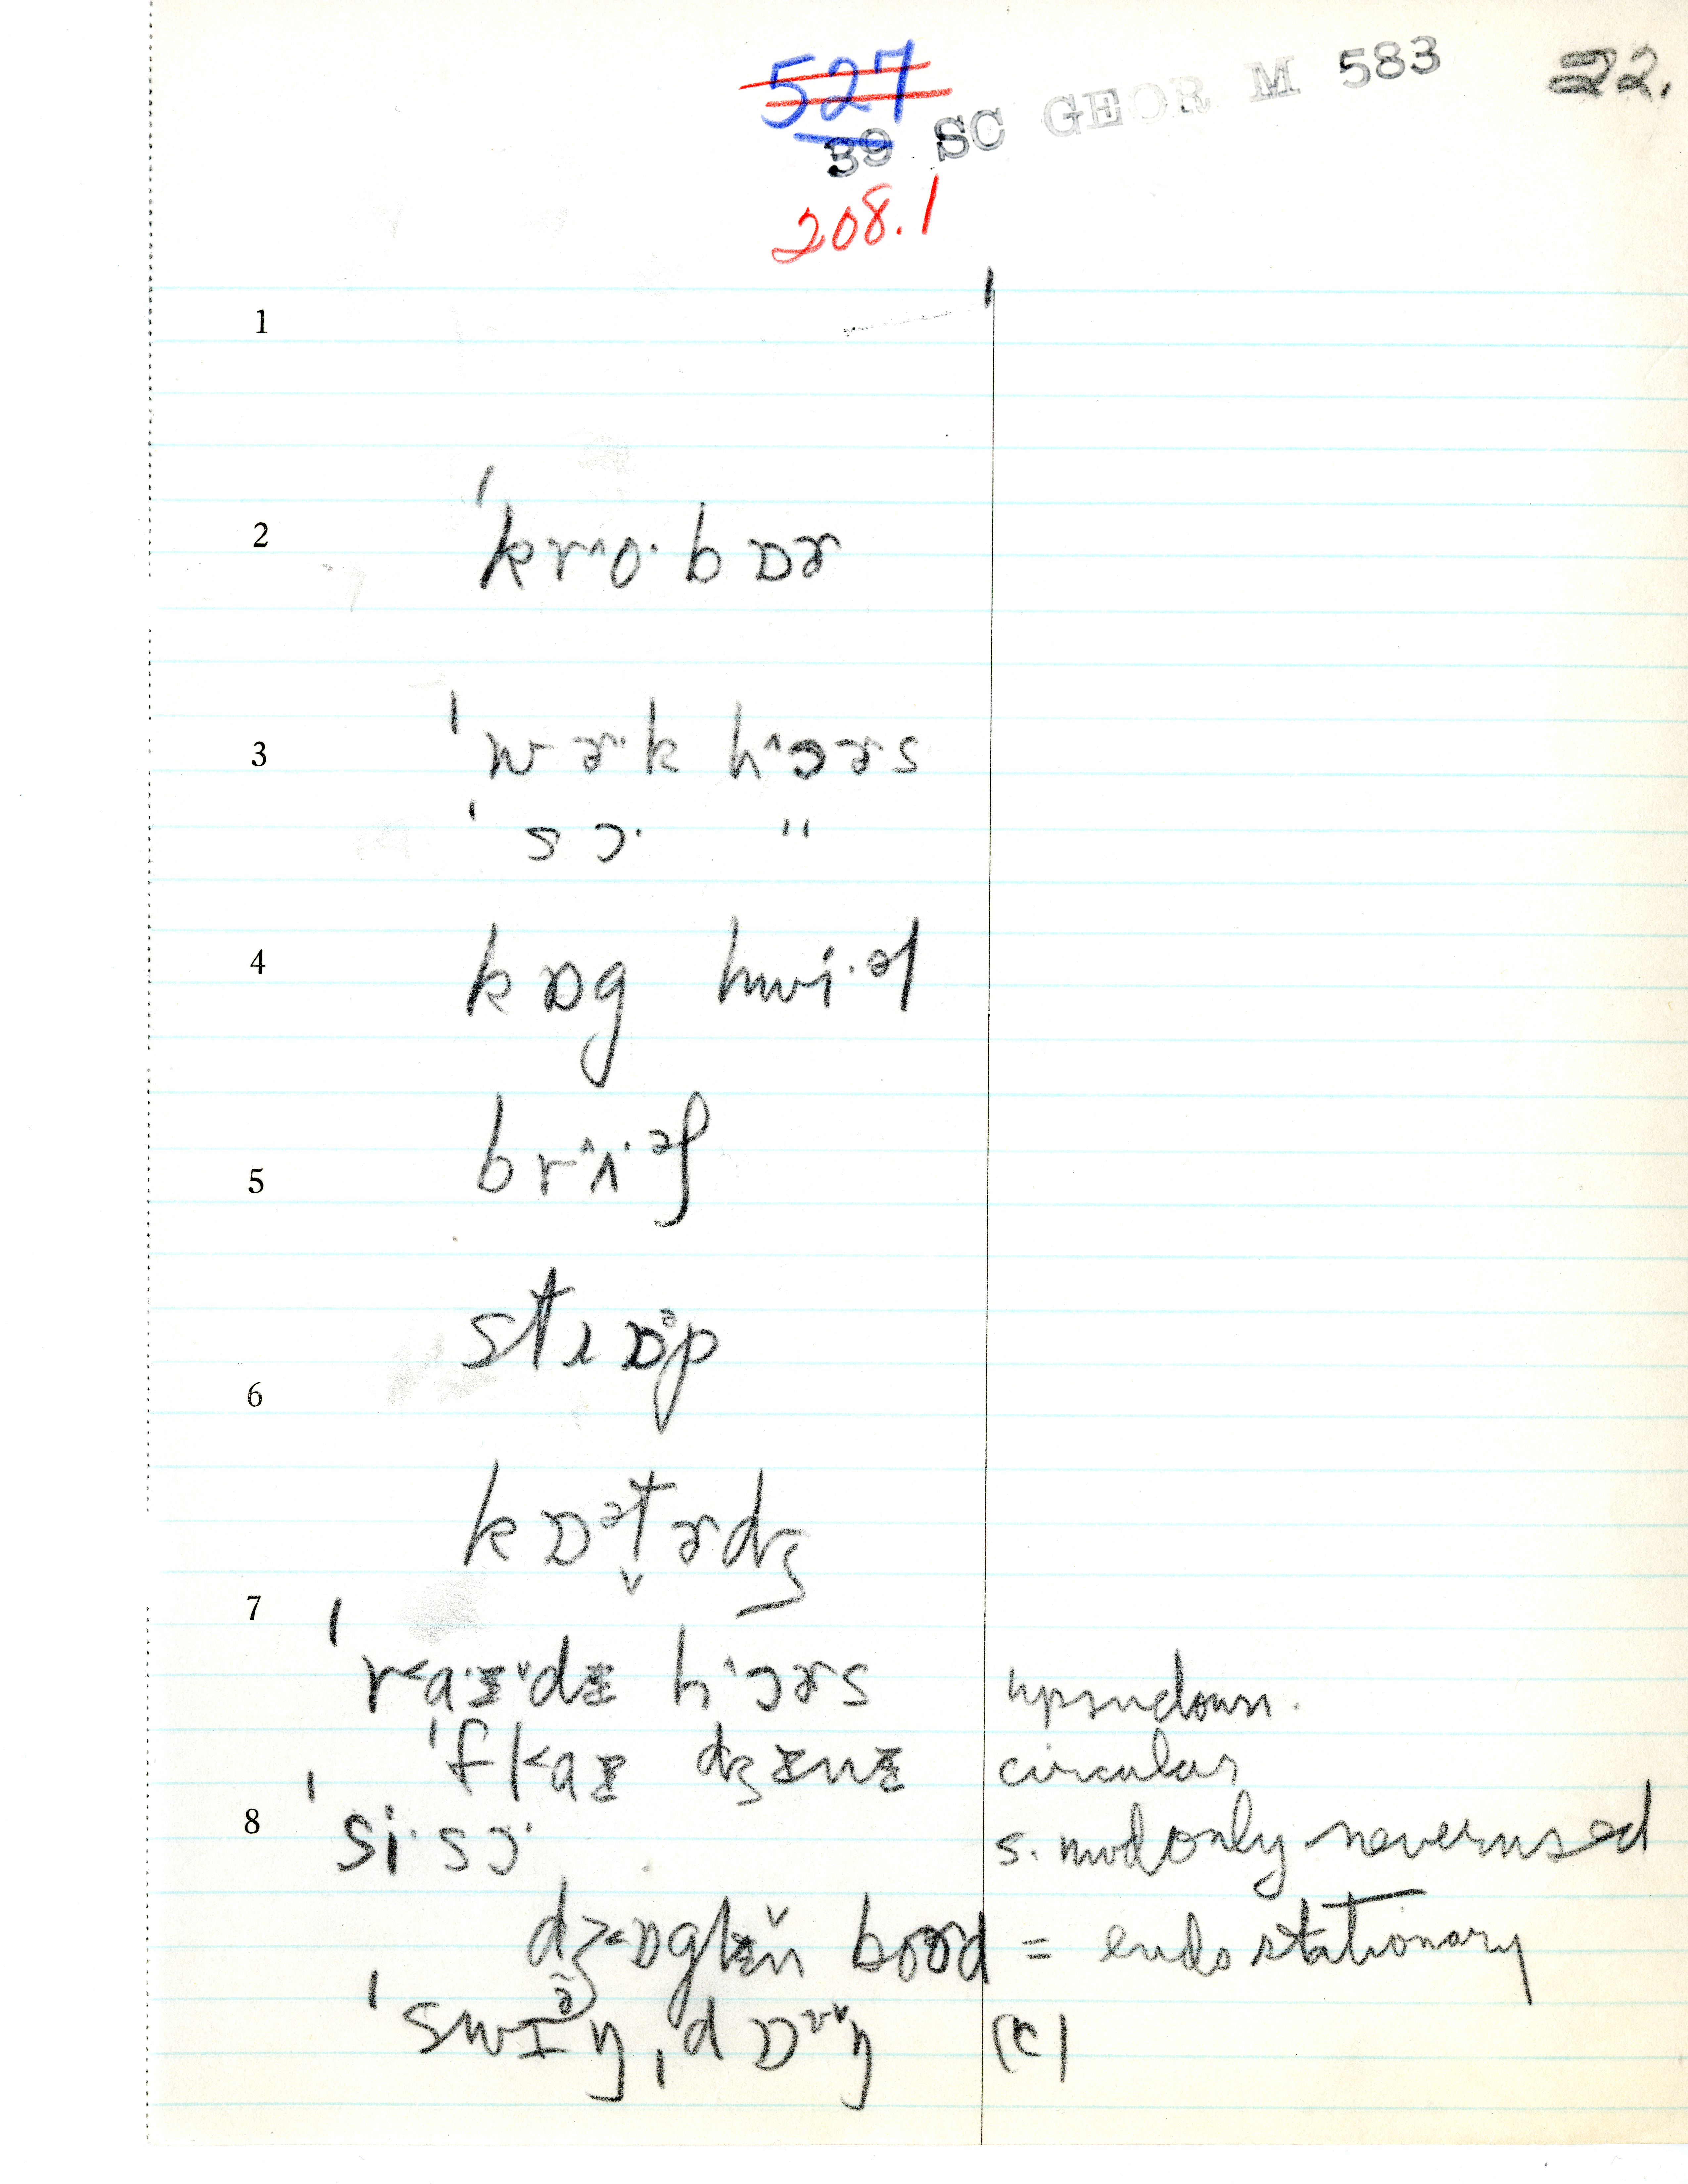 527
39 SC GEOR M 583
22.
208.1
1
2 ˈkrˆo· bɒɚ
3 ˈwɚ·k hˆɔɚs
ˈsɔ· "
4 kɒg hwi·əl
5 brˆʌ·əf
stɹɒᵊp
6
kɒᵊt̬ɚdʒ
7
ˈr˂a·ɪˇdɪ hˆɔɚs upandown.
ˈfl˂aɪ dʒɪnɪ circular
8 ˈsi·sɔ· s. mod only never used
dʒ˂ɒglɪň boɚd = ends stationary
ˈswɪə̃ŋ, d ɒ ŋ (c)